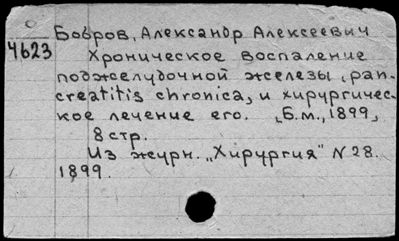 Бобров, Александр Алексеевич
4623 Хроническое воспаление
поджелудочной железы, pan-
creatitis chronica, и хирургичес-
кое лечение его. [Б.м., 1899]
8 стр.
Из журн. "Хирургия" N 28.
1899.